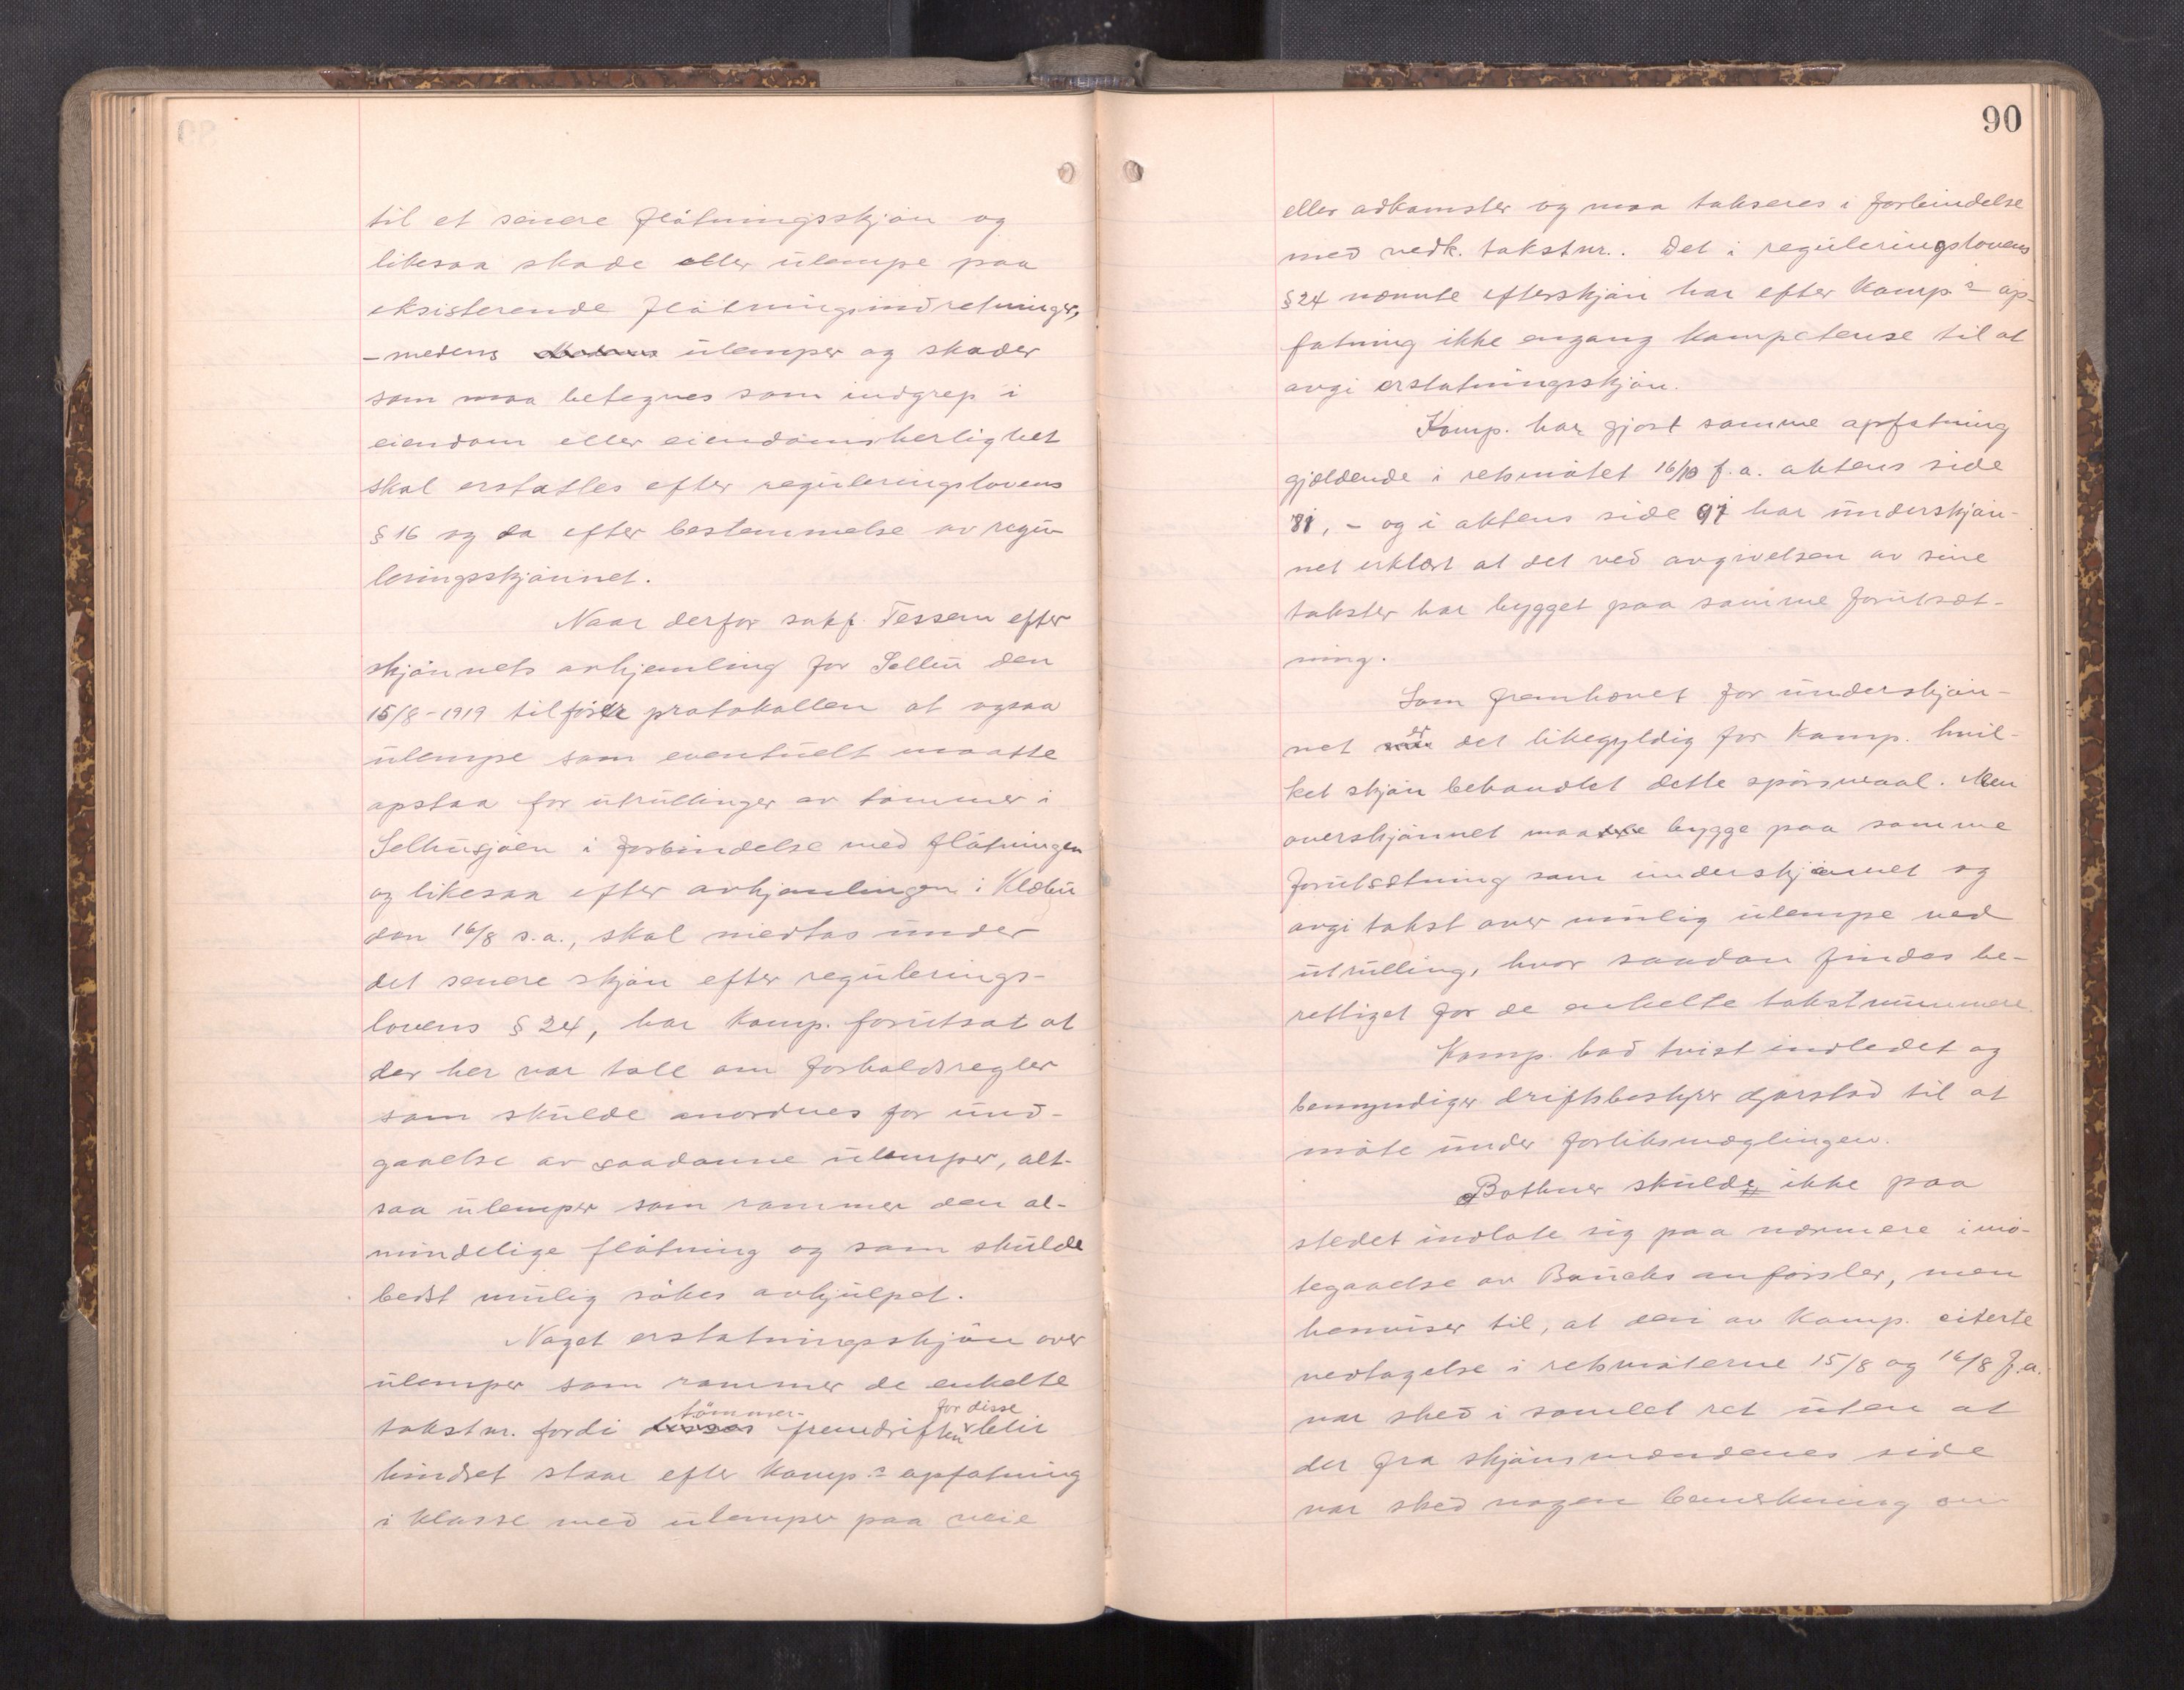 til et senere flötningsskjön og
likesaa skade eller ulempe paa
eksisterende flötningsindretninger,
- medens ulemper og skader
som maa betegnes som indgrep i
eiendom eller eiendomsherlighet
skal erstattes efter reguleringslovens
§ 16 og da efter bestemmelse av regu-
leringsskjönnet.
Naar derfor sakf. Tessem efter
skjönnets avhjemling for Selbu den
15/8-1919 tilförer protokollen at ogsaa
ulempe som eventuelt maatte
opstaa for utrullinger av tömmer i
Selbusjöen i forbindelse med flötningen
og likesaa efter avhjemlingen i Klæbu
den 16/8 s.a., skal medtas under
det senere skjön efter regulerings-
lovens § 24, har Komp. forutsat at
der her var tale om forholdsregler
som skulde anordnes for und-
gaaelse av saadanne ulemper, alt-
saa ulemper som rammer den al-
mindelige flötning og som skulde
bedst mulig sökes avhjulpet.
Noget erstatningsskjön over
ulemper som rammer de enkelte
tömmer- for disse
takstnr. fordi fremdriften blir
hindret staar efter Komp.s opfatning
i klasse med ulemper paa veie
90
eller adkomster og maa takseres i forbindelse
med vedk. takstnr.. Det i reguleringslovens
§ 24 nævnte efterskjön har efter Komp.s op-
fatning ikke engang kompetense til at
avgi erstatningsskjön.
Komp. har gjort samme opfatning
gjældende i retsmötet 16/10 f.a. aktens side
81, - og i aktens side 97 har underskjön-
net erklært at det ved avgivelsen av sine
takster har bygget paa samme forutsæt-
ning.
Som fremhævet for underskjön-
er
net det likegyldig for Komp. hvil-
ket skjön behandlet dette spörsmaal. Men
overskjönnet maa bygge paa samme
forutsætning som underskjönnet og
avgi takst over mulig ulempe ved
utrulling, hvor saadan findes be-
rettiget for de enkelte takstnummere.
Komp. bad tvist indledet og
bemyndiger driftsbestyrer Gjörstad til at
möte under forliksmæglingen.
Bothner skulde ikke paa
stedet indlate sig paa nærmere imö-
tegaaelse av Baucks anförsler, men
henviser til, at den av Komp. citerte
vedtagelse i retsmöterne 15/8 og 16/8 f.a.
var sked i samlet ret uten at
der fra skjönsmændenes side
var sked nogen bemerkning om